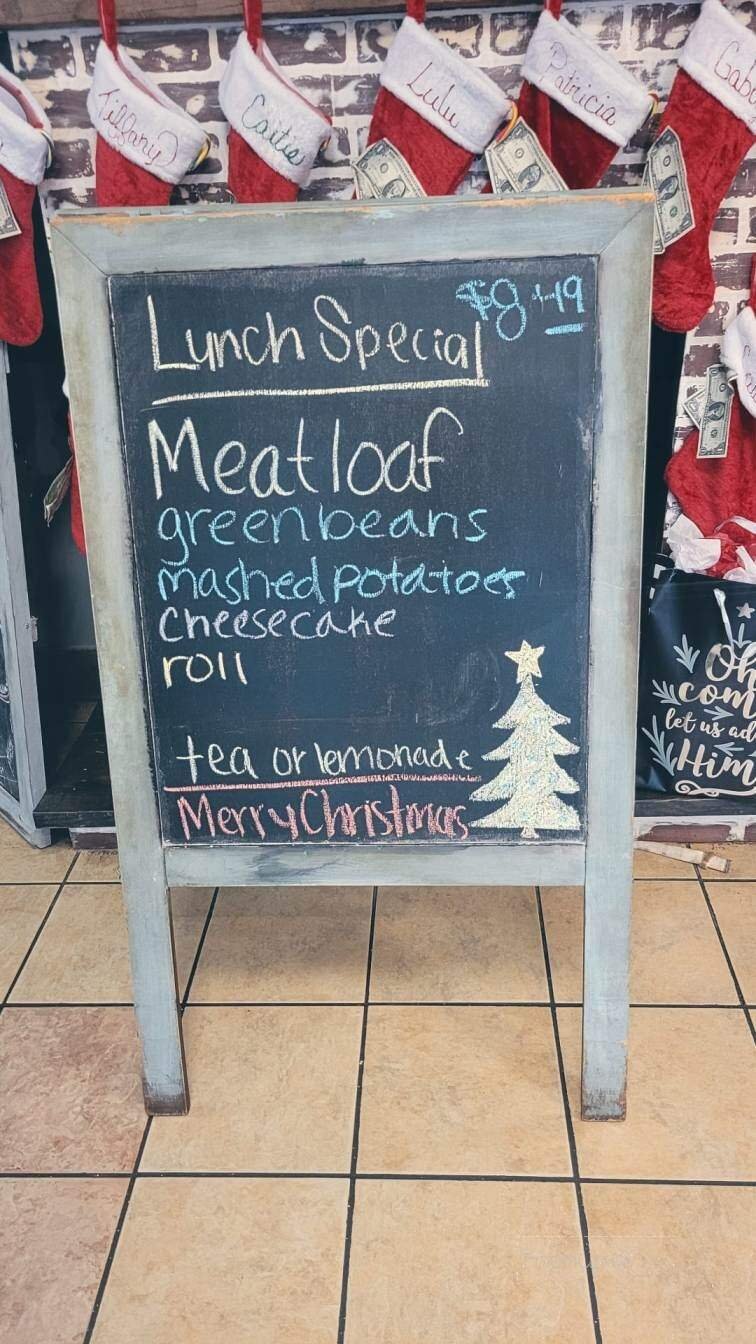 Tiffany
Caitie
Lulu
Patricia
Lunch Special
Meatloaf
green beans
mashed potatoes
cheesecake
roll
tea or lemonade
Merry Christmas
Oh
let us
Him